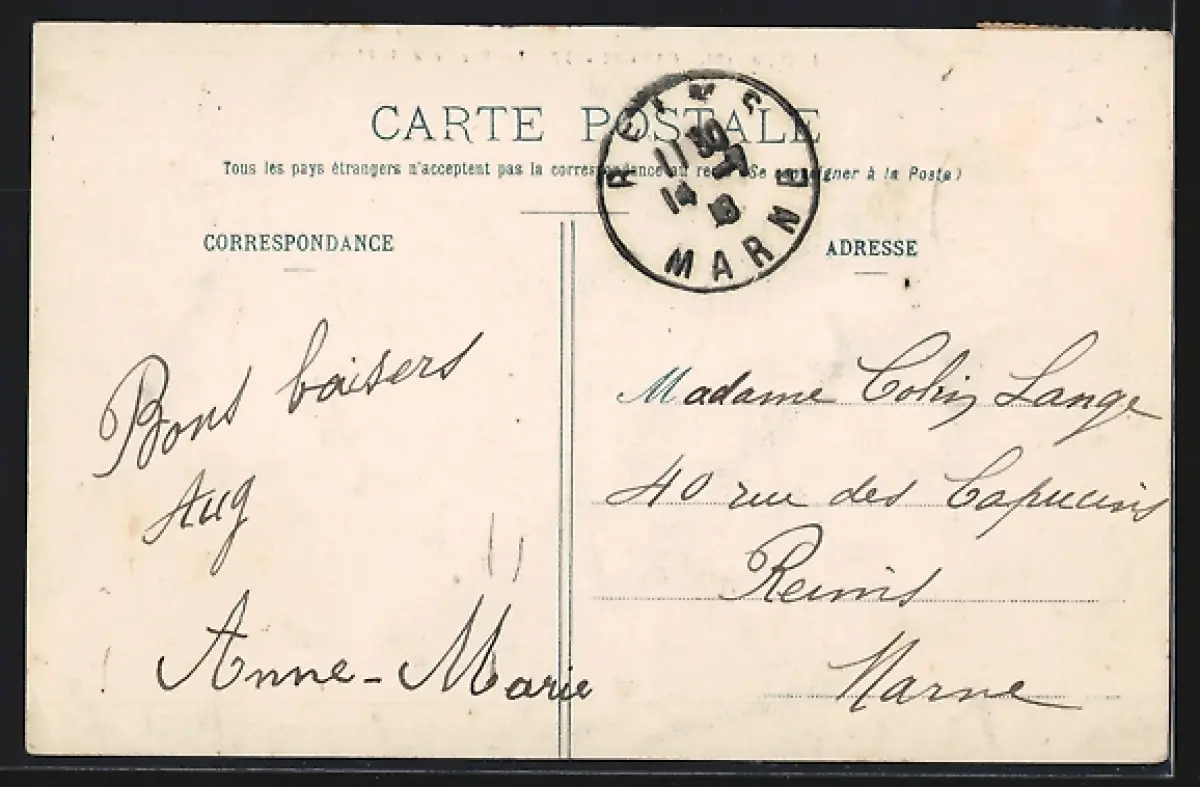 CARTE POSTALE
Tous les pays étrangers n'acceptent pas la correspondance au recto (Se renseigner à la Poste)
REIMS
11 30
14 -7
MARNE
CORRESPONDANCE
ADRESSE
Bons baisers
Aug
Anne-Marie
Madame Colin Lange
40 rue des Capucins
Reims
Marne